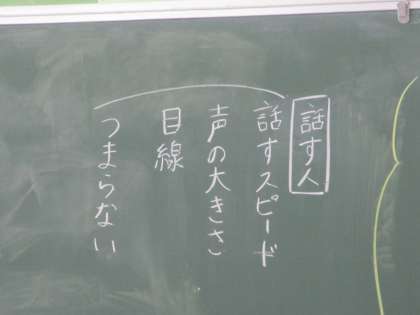 話す人
話すスピード
声の大きさ
目線
つまらない